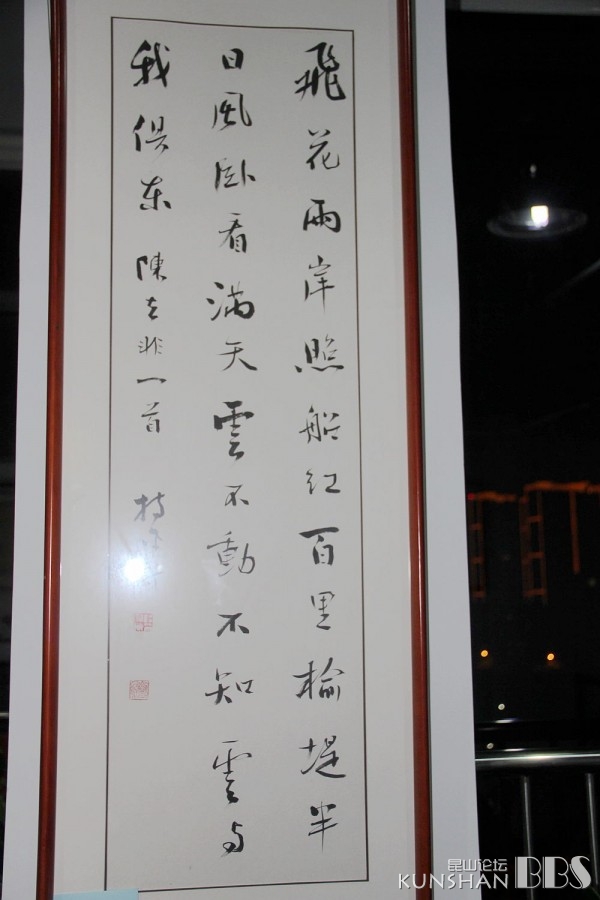 飛花兩岸照船紅百里榆堤半
日風卧看滿天雲不動不知雲與
我俱東 陳去非一首
昆山论坛
KUNSHAN BBS